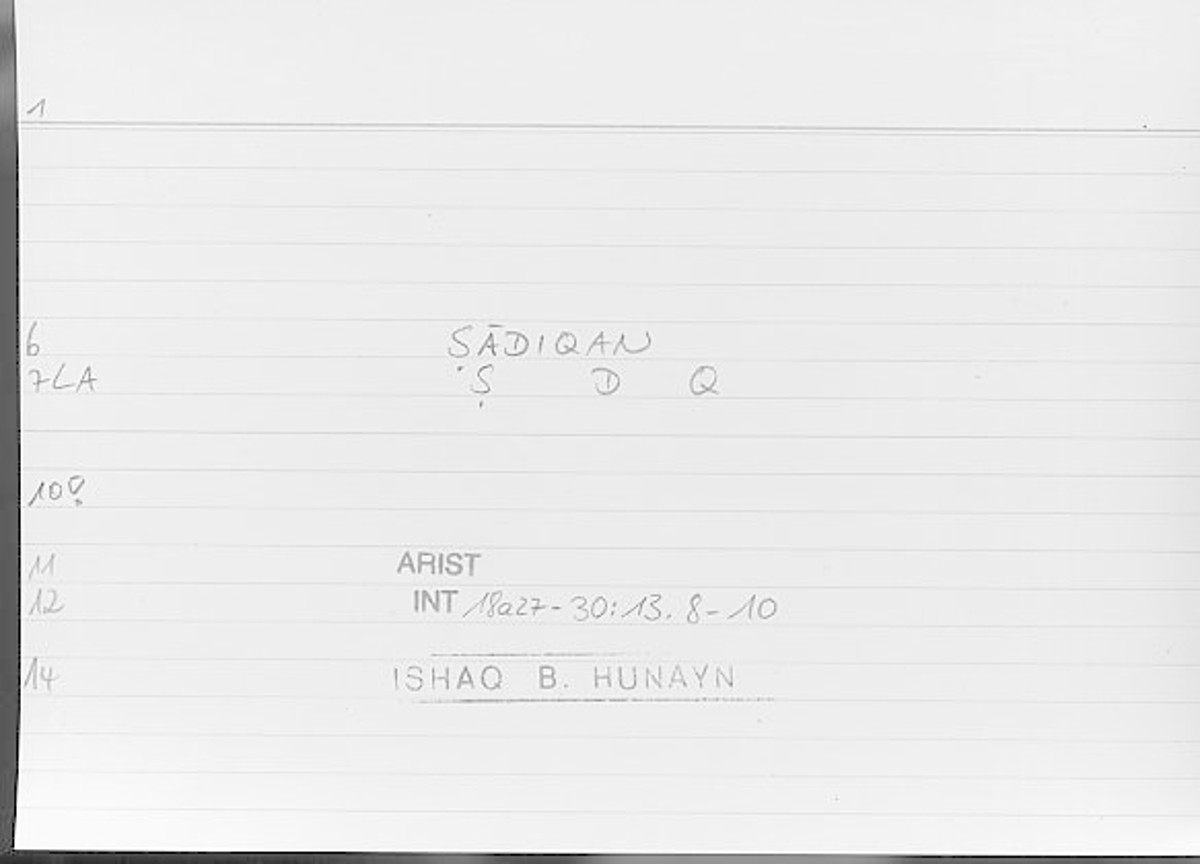 1
6 ṢĀDIQAN
7LA Ṣ D Q
10
11 ARIST
12 INT 18a27-30:13.8-10
14 ISHAQ B. HUNAYN